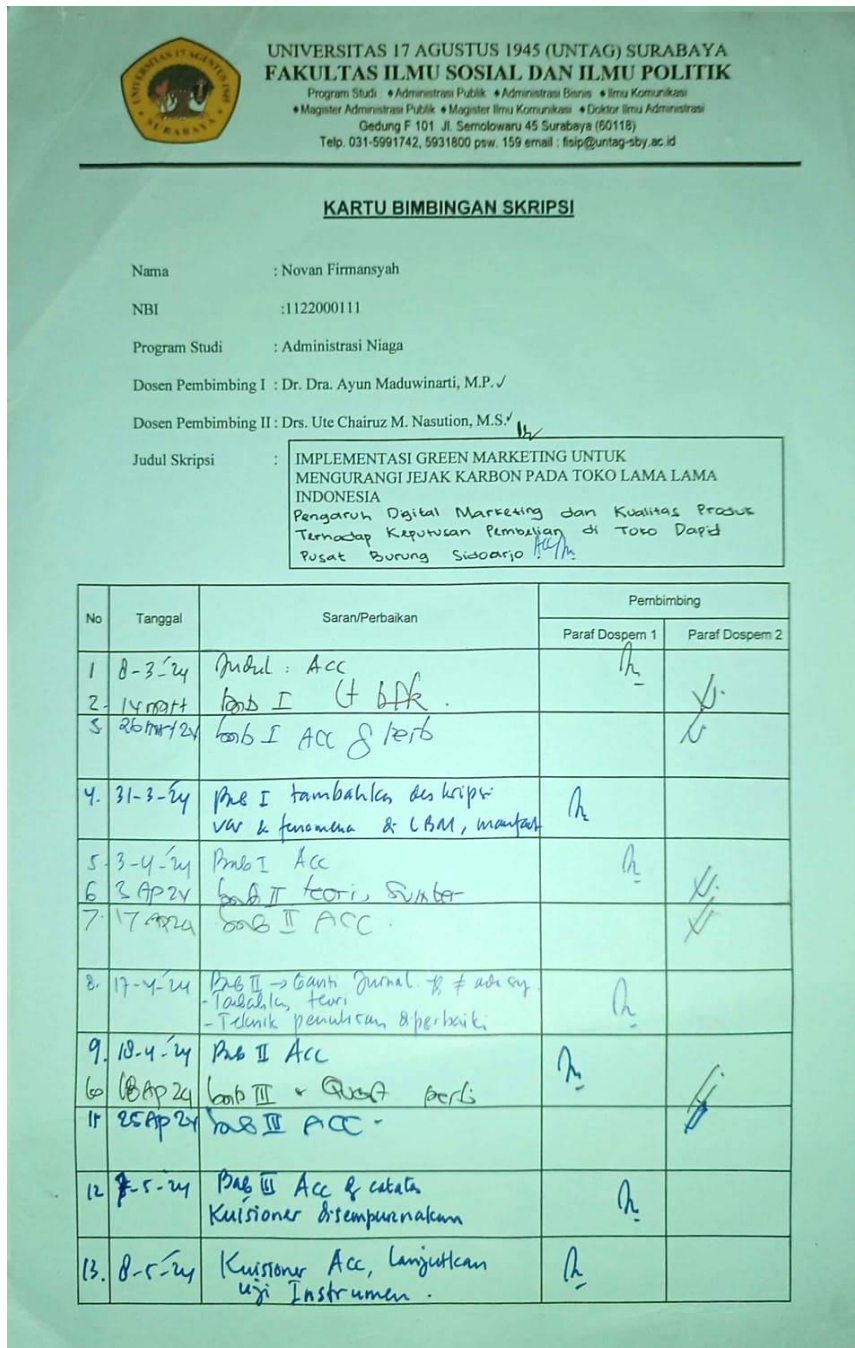 UNIVERSITAS 17 AGUSTUS 1945 (UNTAG) SURABAYA
FAKULTAS ILMU SOSIAL DAN ILMU POLITIK
Program Studi : ♦Administrasi Publik ♦Administrasi Bisnis ♦Ilmu Komunikasi
♦Magister Administrasi Publik ♦Magister Ilmu Komunikasi ♦Doktor Ilmu Administrasi
Gedung F 101 Jl. Semolowaru 45 Surabaya (60118)
Telp. 031-5991742, 5931800 psw. 159 email : fisip@untag-sby.ac.id
KARTU BIMBINGAN SKRIPSI
Nama : Novan Firmansyah
NBI :1122000111
Program Studi : Administrasi Niaga
Dosen Pembimbing I : Dr. Dra. Ayun Maduwinarti, M.P. ✓
Dosen Pembimbing II : Drs. Ute Chairuz M. Nasution, M.S. ✓
Judul Skripsi : IMPLEMENTASI GREEN MARKETING UNTUK
MENGURANGI JEJAK KARBON PADA TOKO LAMA LAMA
INDONESIA
Pengaruh Digital Marketing dan Kualitas Produk
Terhadap Keputusan Pembelian di Toko Dapid
Pusat Burung Sidoarjo
No Tanggal Saran/Perbaikan Pembimbing
Paraf Dospem 1 Paraf Dospem 2
1 8-3-'24 Judul : Acc
2. 14 mart bab I
bab I ACC
4. 31-3-'24 Bab I tambahkan deskripsi
var & fenomena di LBM, manfaat
5. 3-4-'24 Bab I Acc
6 3 Ap 24 bab II teori, Sumber
7. 17 Ap 24 bab II ACC.
8. 17-4-'24 Bab II → Ganti Jurnal
- Tambahkan teori
- Teknik penulisan diperbaiki
9. 18-4-'24 Bab II Acc
18 Ap 24 bab III
11 25 Ap 24 bab III ACC -
12 7-5-'24 Bab III Acc & catatan
Kuisioner disempurnakan
13. 8-5-'24 Kuisioner Acc, Lanjutkan
uji Instrumen.